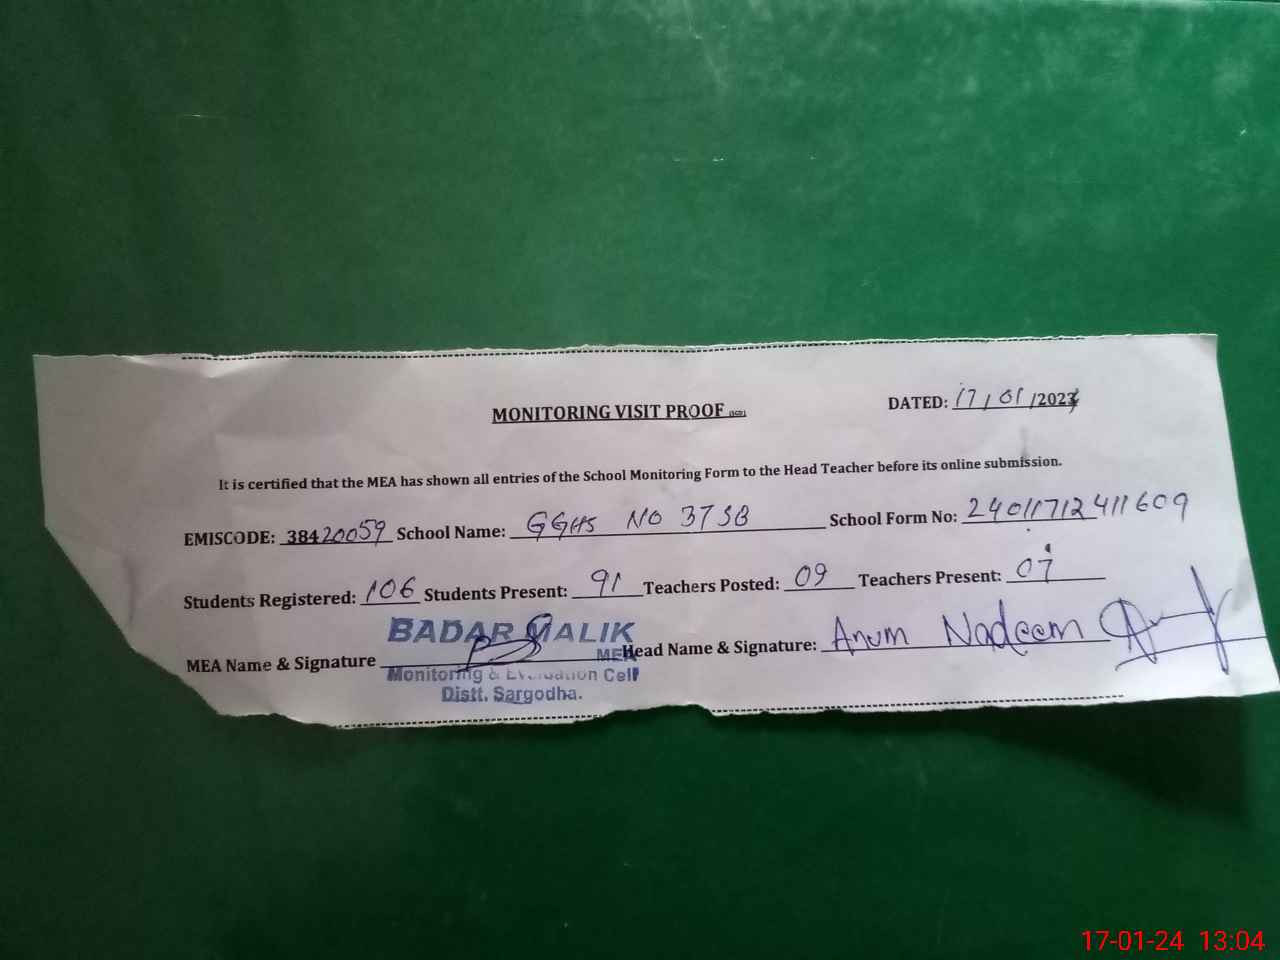 MONITORING VISIT PROOF (SGD)
DATED: 17/01/2024
It is certified that the MEA has shown all entries of the School Monitoring Form to the Head Teacher before its online submission.
EMISCODE: 38420059 School Name: GGHS NO 37SB School Form No: 2401171241​1609
Students Registered: 106 Students Present: 91 Teachers Posted: 09 Teachers Present: 07
BADAR MALIK
MEA Name & Signature MEA Head Name & Signature: Anum Nadeem
Monitoring & Evaluation Cell
Distt. Sargodha.
17-01-24 13:04